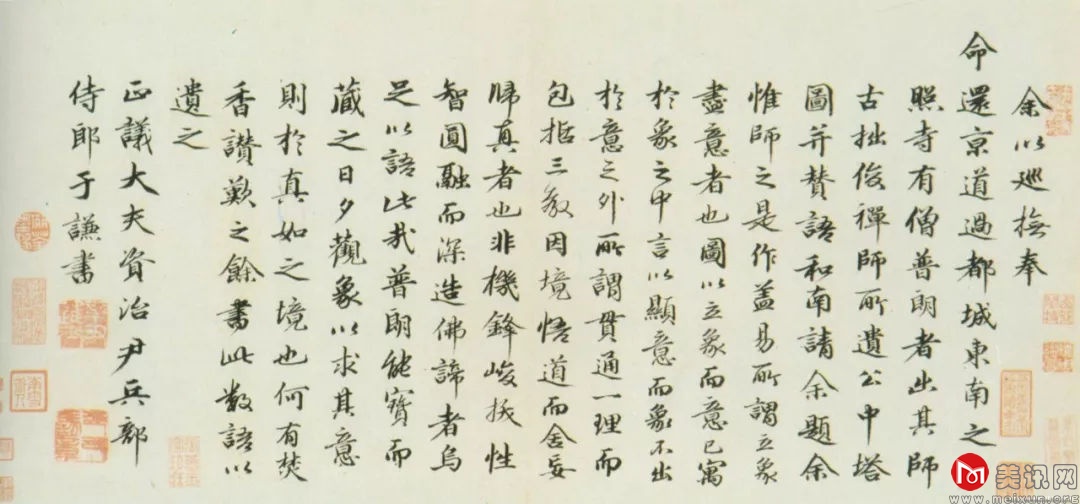 余以巡撫奉
命還京道過都城東南之
照寺有僧普朗者出其師
古拙俊禪師所遺公中塔
圖并贊語和南請余題余
惟師之是作蓋易所謂立象
盡意者也圖以立象而意已寓
於象之中言以顯意而象不出
於意之外所謂貫通一理而
包括三教因境悟道而舍妄
歸真者也非機鋒峻拔性
智圓融而深造佛諦者烏
足以語此哉普朗能寶而
藏之日夕觀象以求其意
則於真如之境也何有焚
香讚歎之餘書此數語以
遺之
正議大夫資治尹兵部
侍郎于謙書
美讯网
www.meixun.org